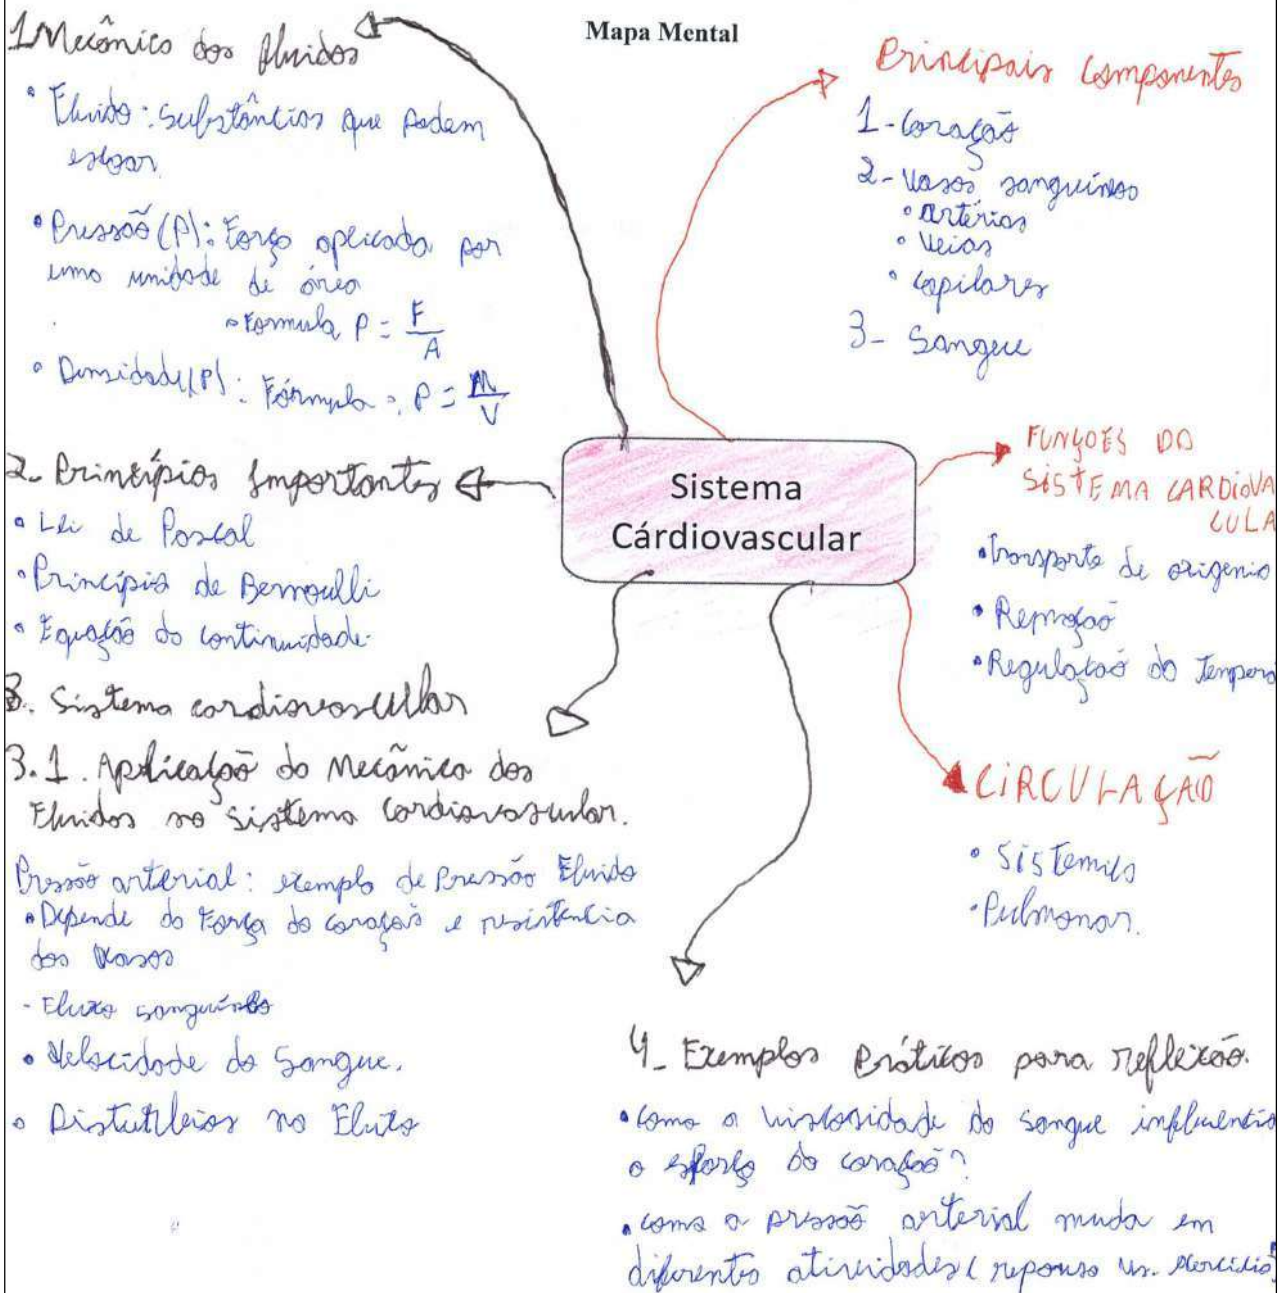 Mapa Mental
1 Mecânica dos fluidos
• Fluido: Substâncias que podem
escoar.
• Pressão (P): Força aplicada por
uma unidade de área
• Formula P = F/A
• Densidade (P): Fórmula: P = M/V
2- Princípios Importantes
• Lei de Pascal
• Princípio de Bernoulli
• Equação da continuidade
3. Sistema cardiovascular
3.1. Aplicação da Mecânica dos
Fluidos no Sistema Cardiovascular.
Pressão arterial: exemplo de Pressão Fluido
• Depende da Força do coração e resistência
dos Vasos
- Fluxo sanguíneo
• Velocidade do Sangue.
• Distúrbios no Fluxo
Sistema
Cárdiovascular
Principais Componentes
1- Coração
2- Vasos sanguíneos
• Artérias
• Veias
• Capilares
3- Sangue
FUNÇOES DO
SISTEMA CARDIOVA
CULA
• Transporte de oxigenio
• Remoção
• Regulação da Tempera
CIRCULAÇÃO
• Sistemica
• Pulmonar.
4- Exemplos Práticos para reflexão.
• Como a viscosidade do sangue influencia
o esforço do coração?
• Como a pressão arterial muda em
diferentes atividades (repouso vs. exercício